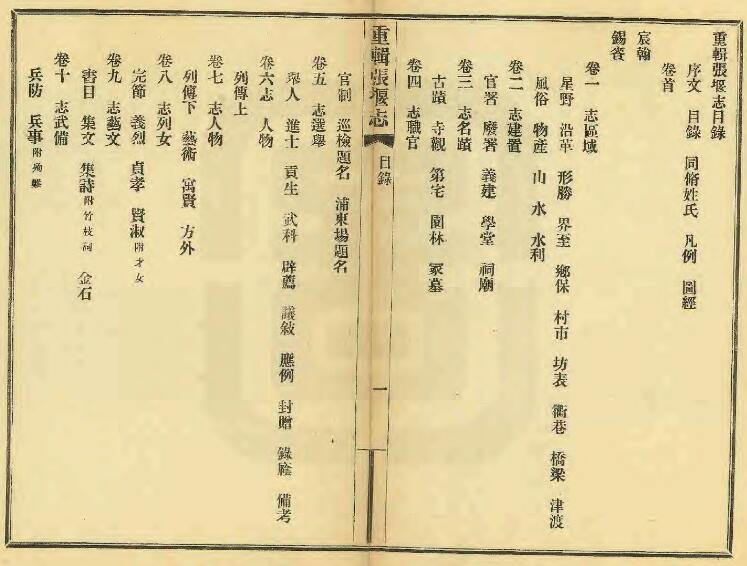 重輯張堰志目錄
序文　目錄　同脩姓氏　凡例　圖經
卷首
宸翰
錫賚
卷一　志區域
星野　沿革　形勝　界至　鄉保　村市　坊表　衢巷　橋梁　津渡
風俗　物產　山　水　水利
卷二　志建置
官署　廢署　義建　學堂　祠廟
卷三　志名蹟
古蹟　寺觀　第宅　園林　冢墓
卷四　志職官
重輯張堰志
目錄
一
官制　巡檢題名　浦東場題名
卷五　志選舉
舉人　進士　貢生　武科　辟薦　議敍　應例　封贈　錄廕　備考
卷六志　人物
列傳上
卷七　志人物
列傳下　藝術　寓賢　方外
卷八　志列女
完節　義烈　貞孝　賢淑附才女
卷九　志藝文
書目　集文　集詩附竹枝詞　金石
卷十　志武備
兵防　兵事附殉難